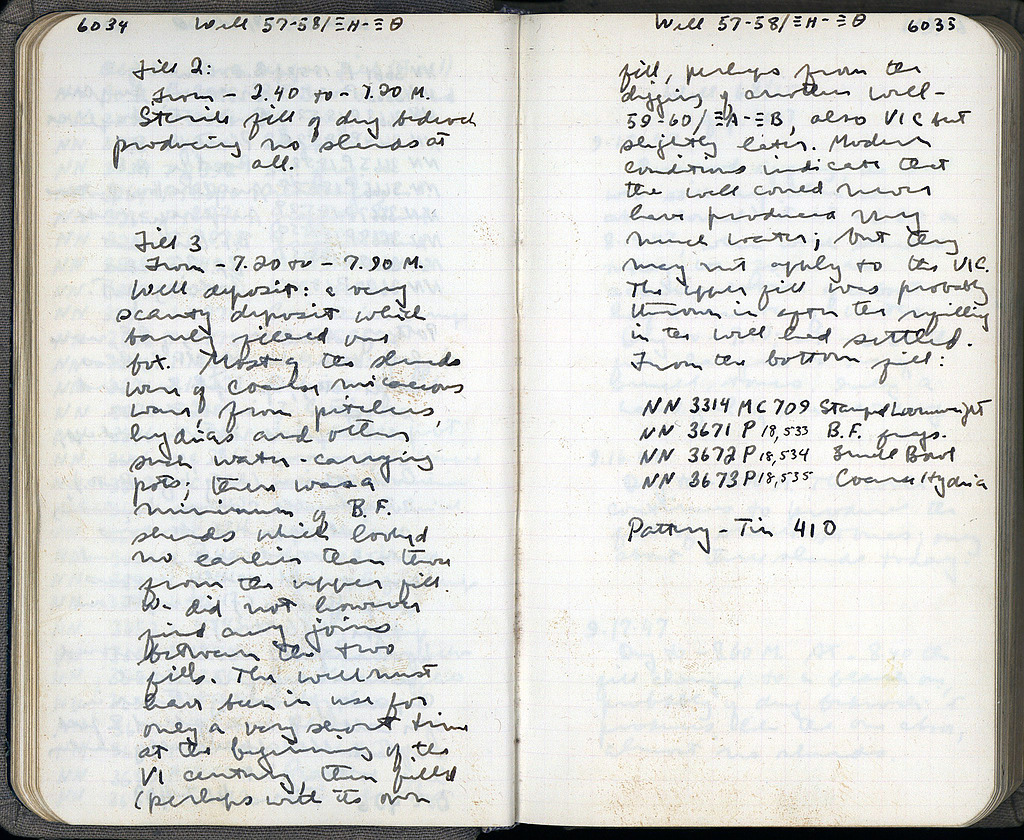 6034 Well 57-58/ΞΗ-ΞΘ
Fill 2:
From - 2.40 to - 7.20 M.
Sterile fill of dug bedrock
producing no sherds at
all.
Fill 3
From - 7.20 to - 7.90 M.
Well deposit: a very
scanty deposit which
barely filled one
box. Most of the sherds
were of coarse micaceous
ware, from pitchers,
hydrias and other
such water-carrying
pots; there was a
minimum of B.F.
sherds which looked
no earlier than those
from the upper fill.
We did not however
find any joins
between the two
fills. The well must
have been in use for
only a very short time
at the beginning of the
VI century then filled
(perhaps with its own
Well 57-58/ΞΗ-ΞΘ 6035
fill, perhaps from the
digging of another well -
59-60/ΞΑ-ΞΒ, also VI C but
slightly later. Modern
conditions indicate that
the well could never
have produced very
much water; but they
may not apply to the VI C.
The upper fill was probably
thrown in after the
in the well had settled.
From the bottom fill:
NN 3314 MC 709 Stamped Loomweight
NN 3671 P 18,533 B.F. frags.
NN 3672 P 18,534 Small Bowl
NN 3673 P 18,535 Coarse Hydria
Pottery - Tin 410